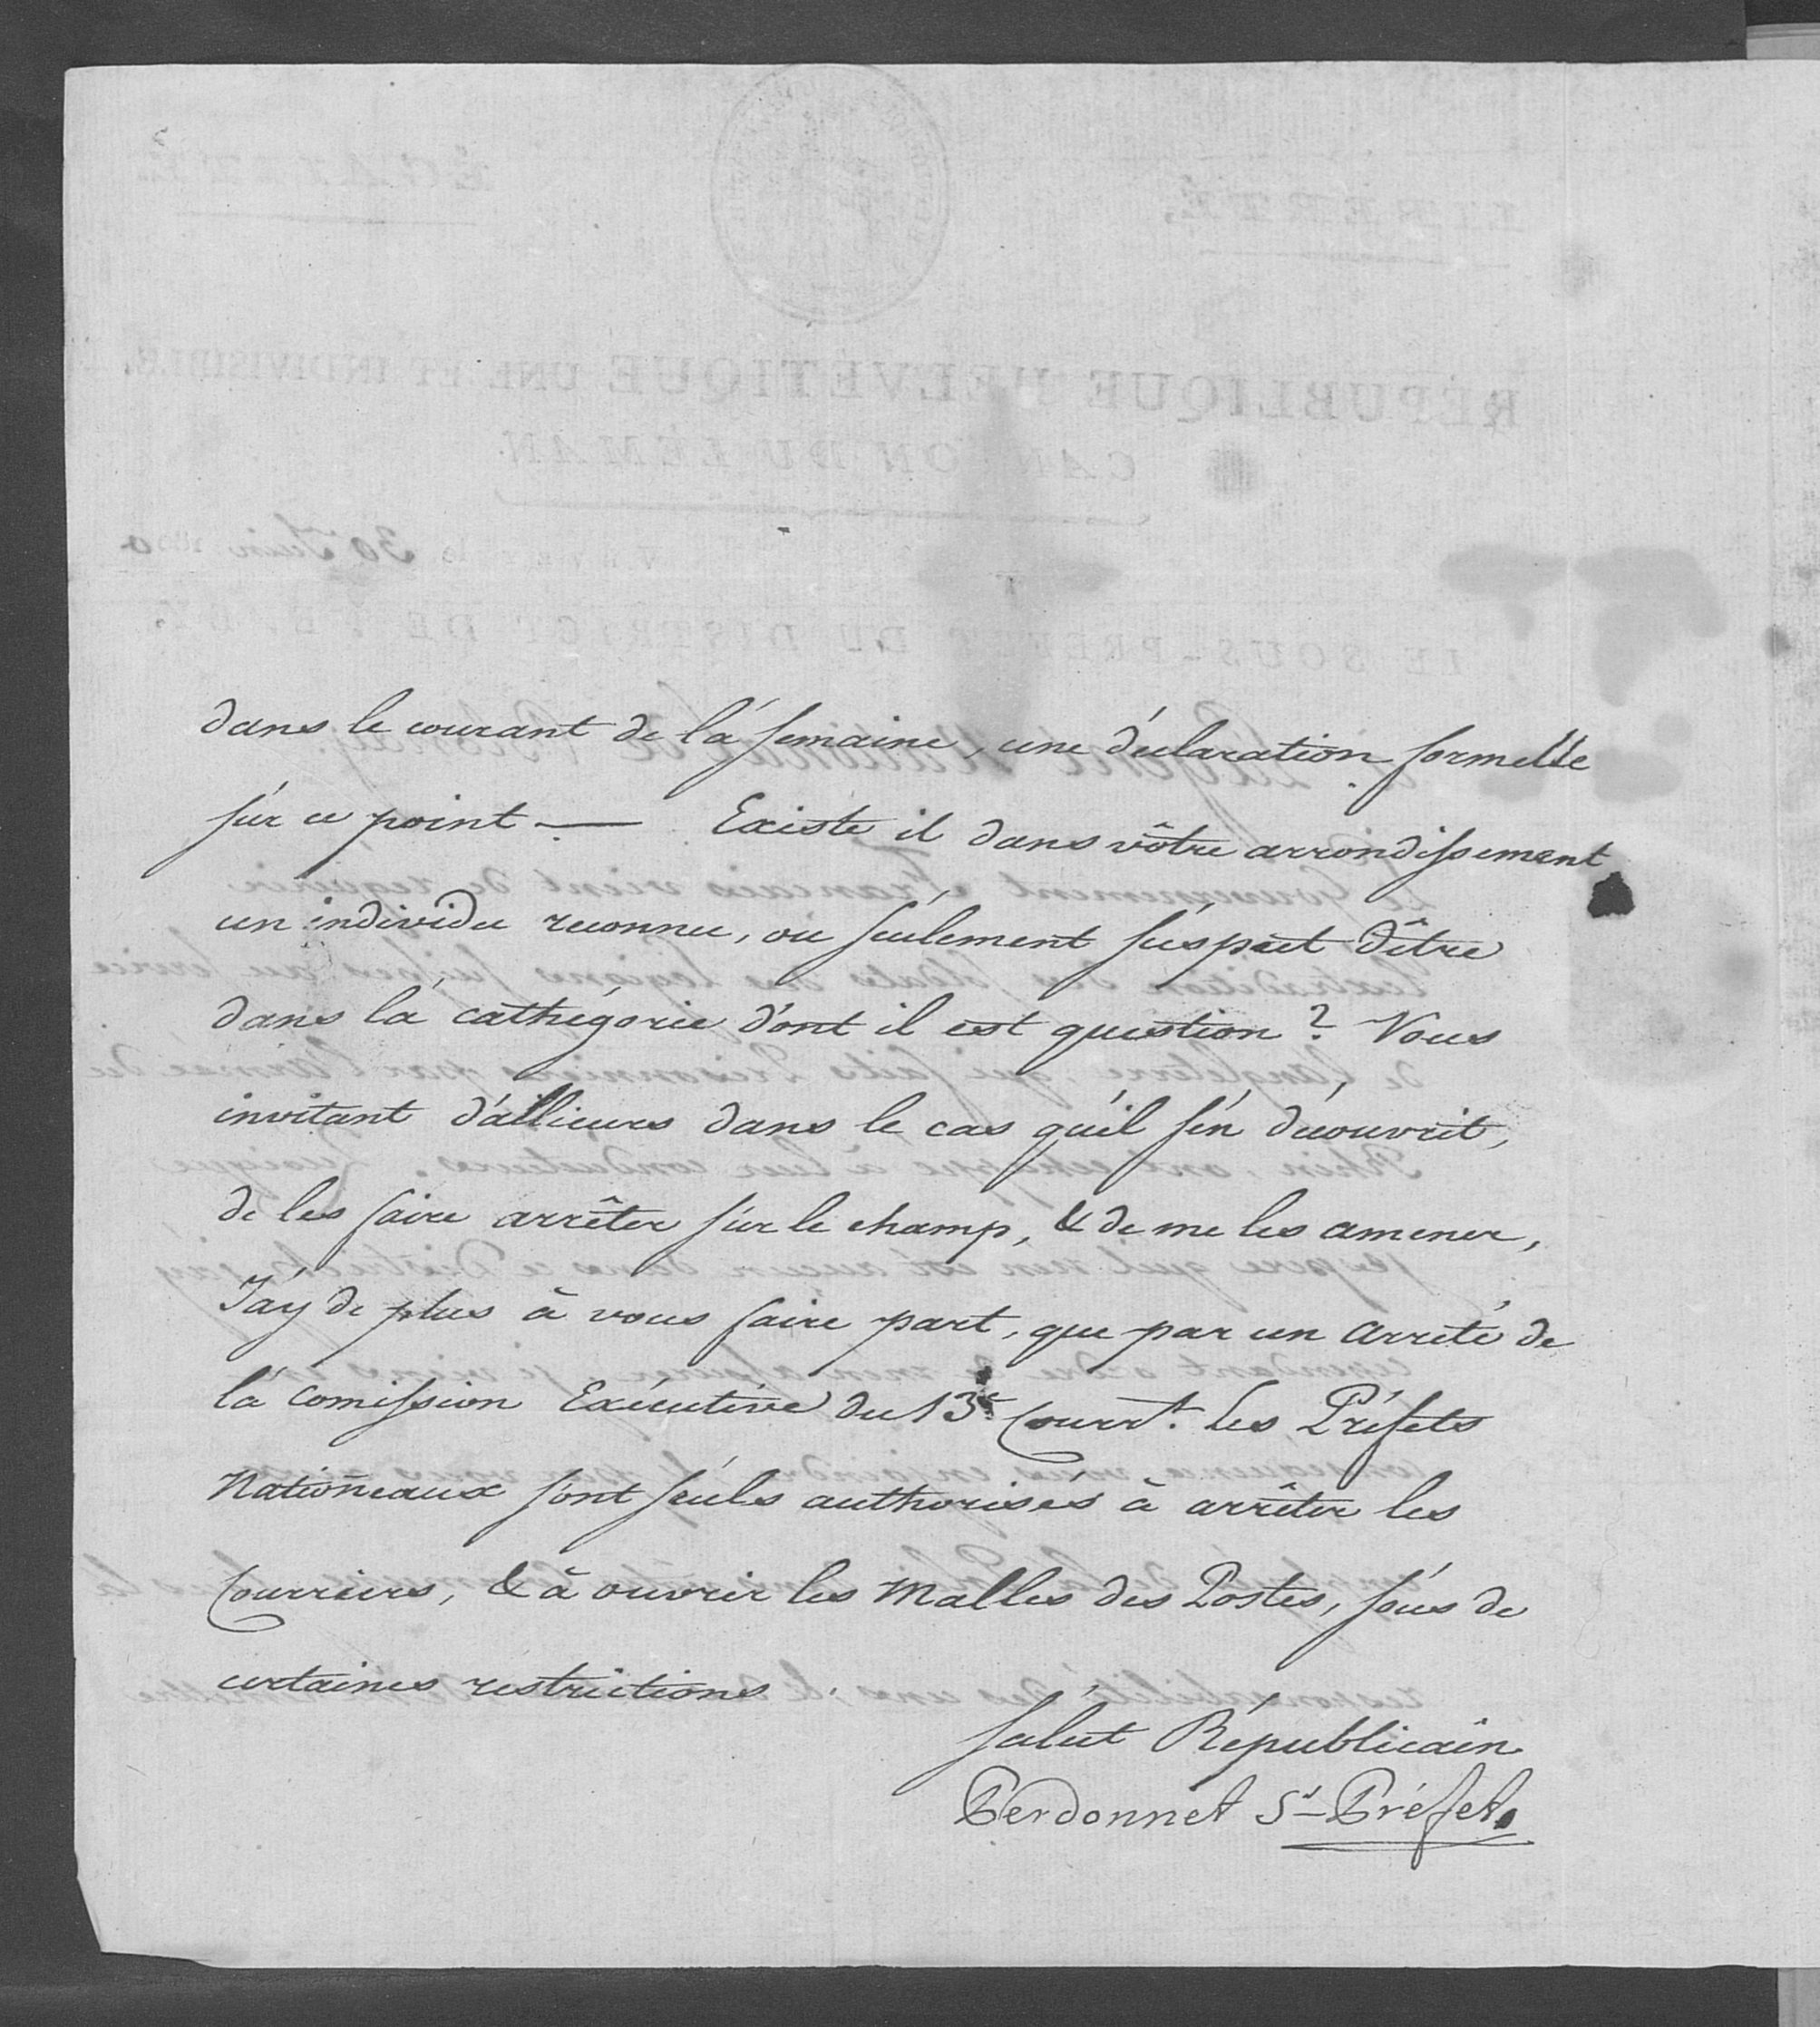 dans le courant de lá semaine, une déclaration formelle
súr ce point — Existe il dans vôtre arrondissement
un individu reconnu, ou seulement súspect d'être
dans lá cathégorie d'ont il est question ? Vous
invitant d'aillieurs dans le cas qu'il s'en découvrit,
de les faire arrêter súr le champ, & de me les amener,
J'ay de plus à vous faire part, que par un Arrêté de
lá Comission Exécutive du 13e Courrt. les Préfets
Nationneaux sont seuls authorisés à arrêter les
Courriers, & à ouvrir les Malles des Postes, sous de
certaines restrictions.
Salut Républicain
Perdonnet St-Préfet.